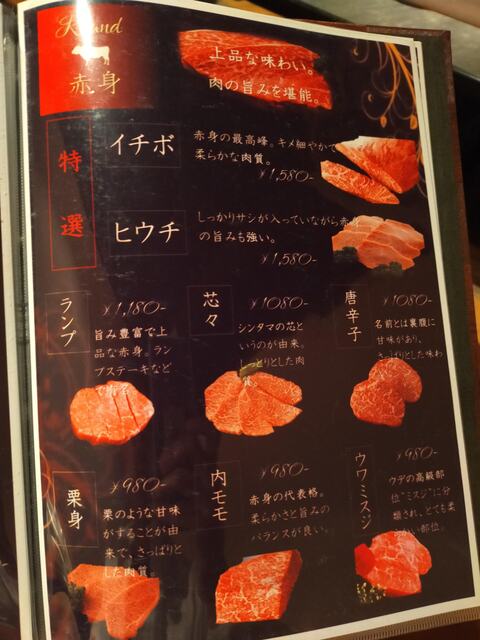 赤身
上品な味わい。
肉の旨みを堪能。
特選
イチボ
赤身の最高峰。キメ細やかで
柔らかな肉質。
¥1,580-
ヒウチ
しっかりサシが入っていながら赤身
の旨みも強い。
¥1,580-
ランプ
¥1,180-
旨み豊富で上
品な赤身。ラン
プステーキなど
芯々
¥1080-
シンタマの芯と
いうのが由来。
しっとりとした肉
唐辛子
¥1080-
名前とは裏腹に
甘味があり、
さっぱりとした味わ
栗身
¥980-
栗のような甘味
がすることが由
来で、さっぱりと
した肉質。
内モモ
¥980-
赤身の代表格。
柔らかさと旨みの
バランスが良い。
ウワミスジ
¥980-
ウデの高級部
位"ミスジ"に分
類され、とても柔
らかい部位。